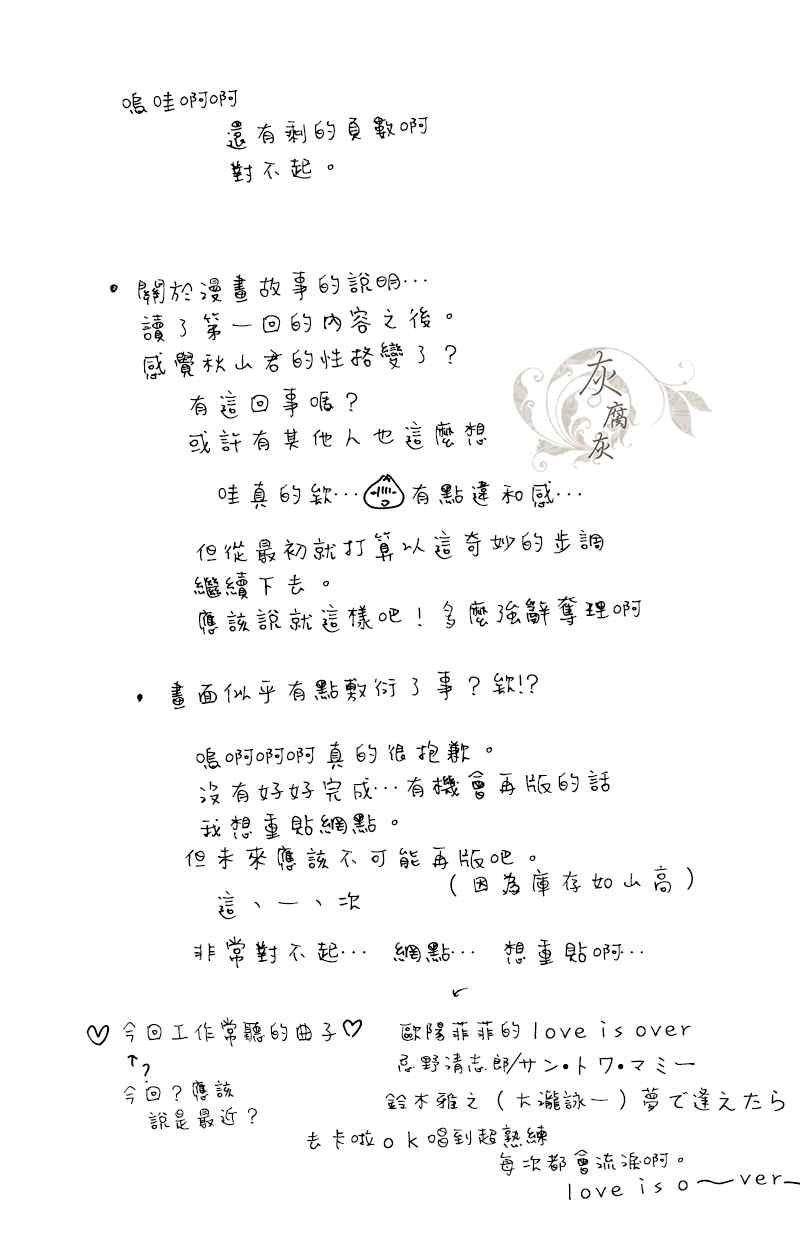 嗚哇啊啊
還有剩的頁數啊
對不起。
• 關於漫畫故事的說明…
讀了第一回的內容之後。
感覺秋山君的性格變了？
有這回事嗎？
或許有其他人也這麼想
哇真的欸… 有點違和感…
但從最初就打算以這奇妙的步調
繼續下去。
應該說就這樣吧！多麼強辭奪理啊
灰
腐
灰
• 畫面似乎有點敷衍了事？欸!?
嗚啊啊啊真的很抱歉。
沒有好好完成…有機會再版的話
我想重貼網點。
但未來應該不可能再版吧。
（因為庫存如山高）
這、一、次
非常對不起… 網點… 想重貼啊…
♡ 今回工作常聽的曲子♡
↑?
今回？應該
說是最近？
歐陽菲菲的love is over
忌野清志郎/サン・トワ・マミー
鈴木雅之（大瀧詠一）夢で逢えたら
去卡啦ok唱到超熟練
每次都會流淚啊。
love is o～ver